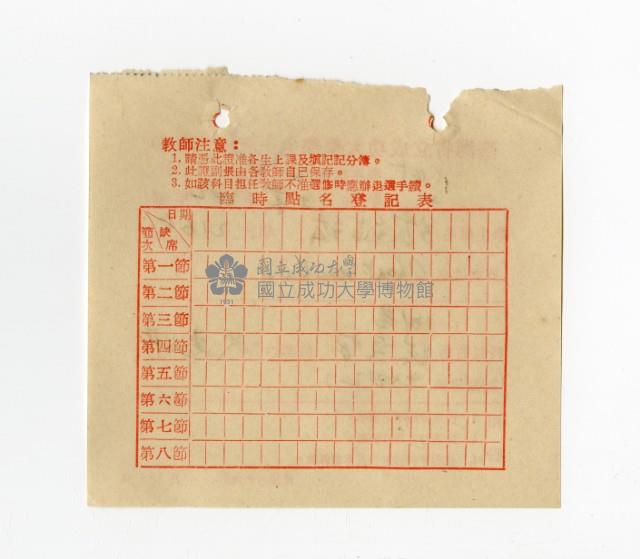 教師注意：
1. 請憑此證准各生上課及填記記分簿。
2. 此證副張由各教師自己保存。
3. 如該科目担任教師不准選修時應辦退選手續。
臨時點名登記表
日期
缺席
節次
第一節
第二節
第三節
第四節
第五節
第六節
第七節
第八節
1931
國立成功大學
國立成功大學博物館